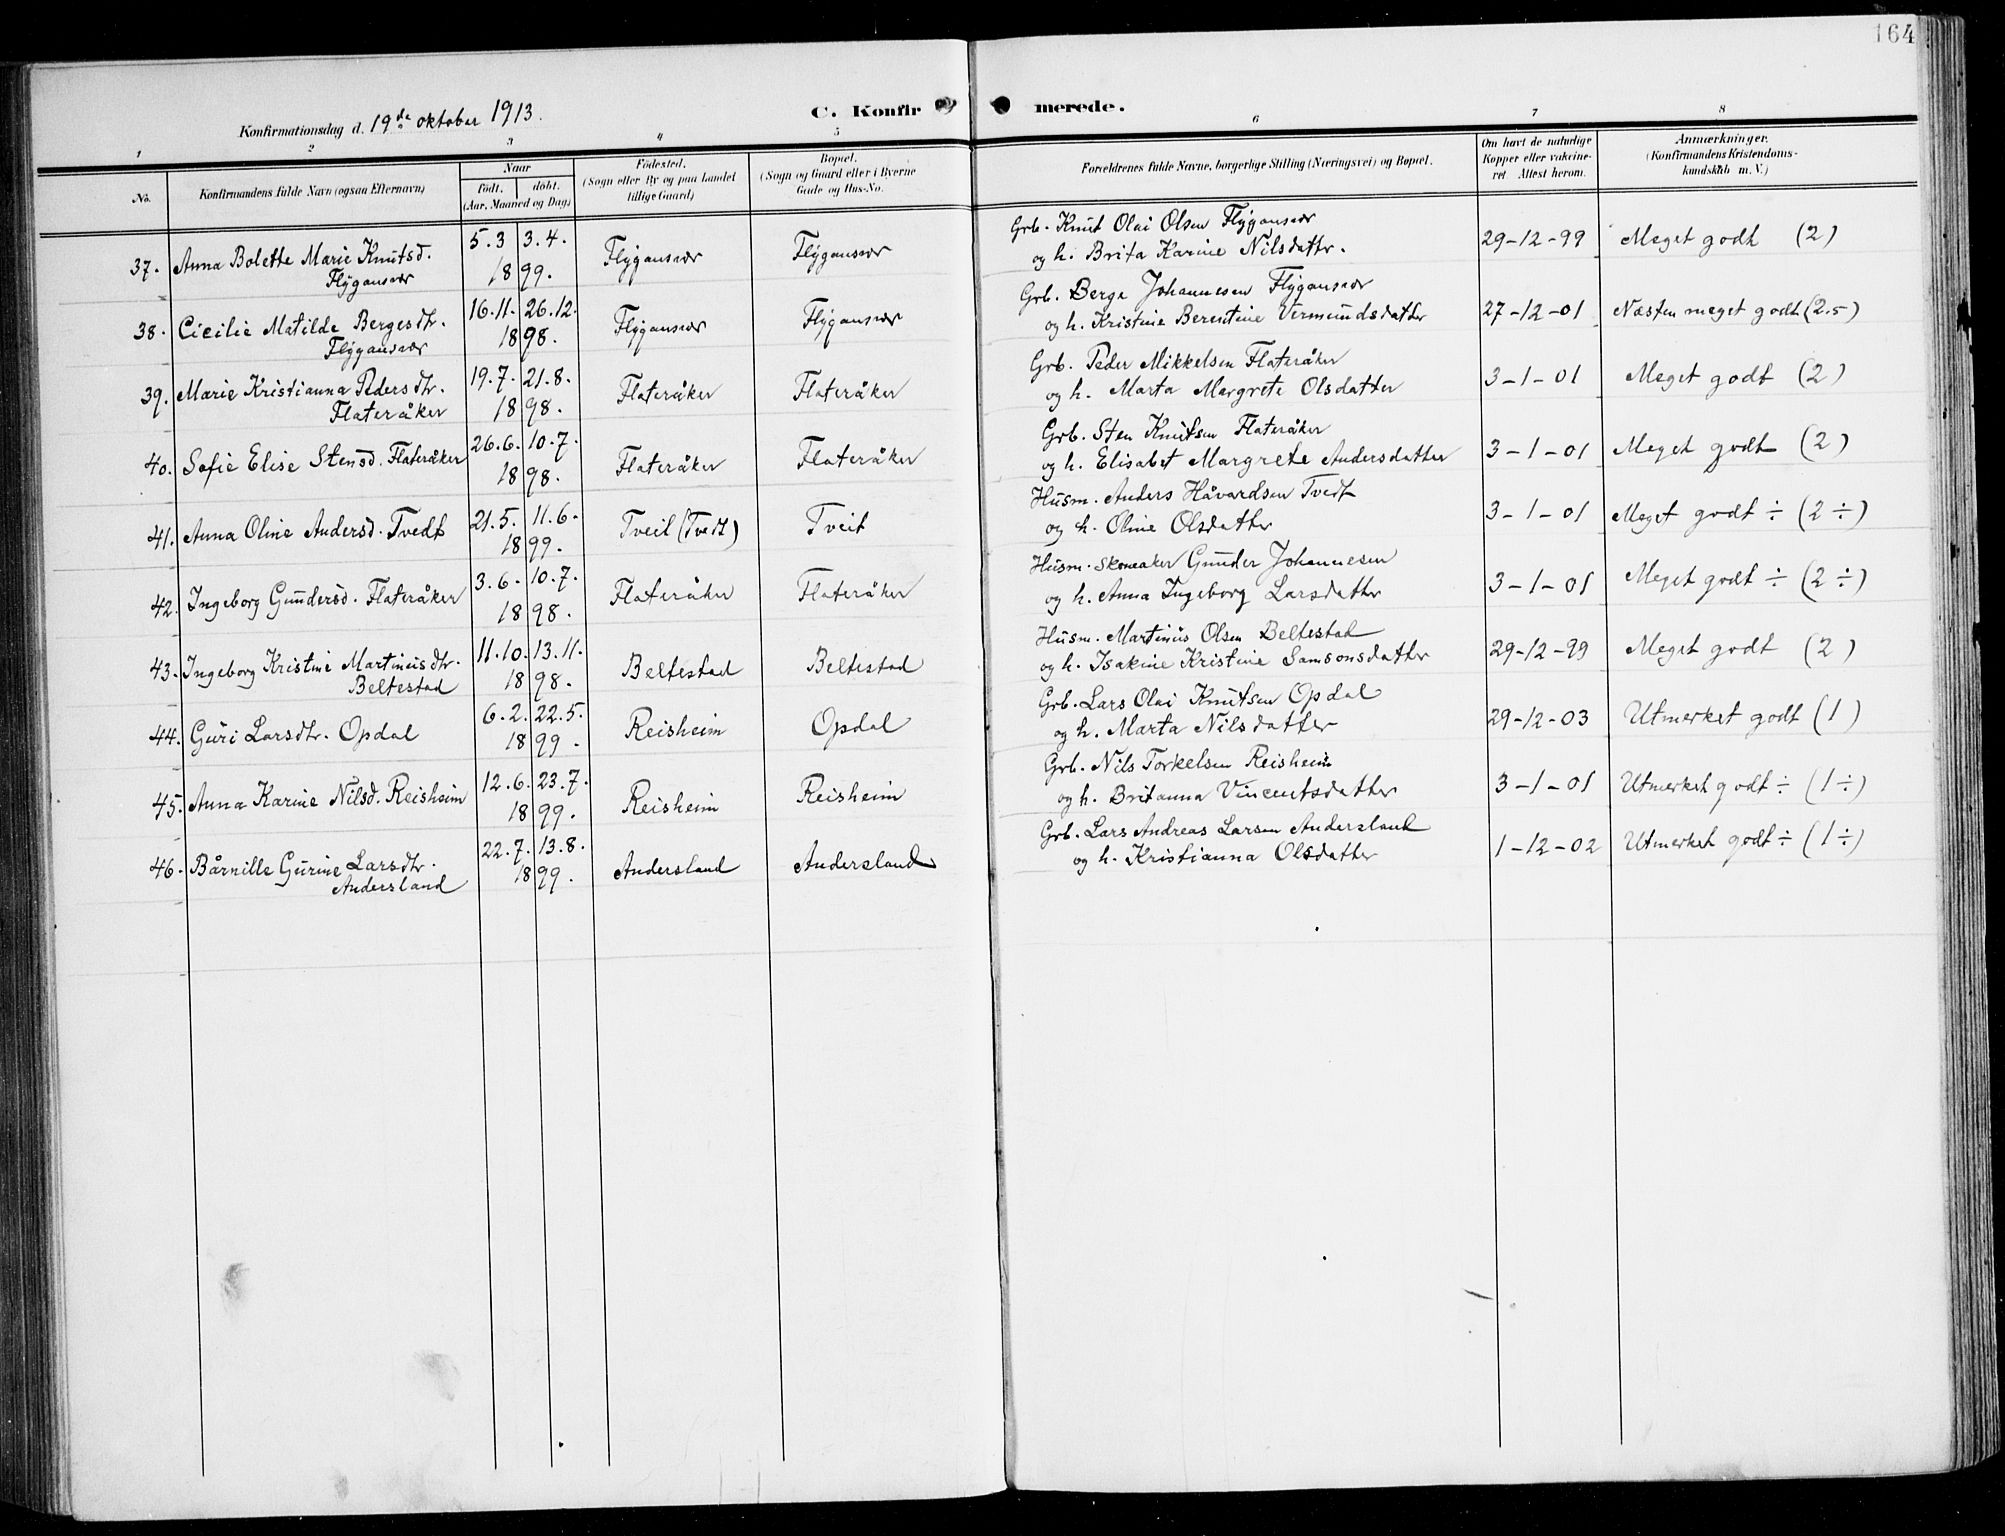 164
Konfirmationsdag d. 19de oktober 1913.
C. Konfirmerede.
1 2 3 4 5 6 7 8
No.
Konfirmandens fulde Navn (ogsaa Efternavn)
Naar
født. døbt.
(Aar, Maaned og Dag)
Fødested.
(Sogn eller By og paa Landet
tillige Gaard)
Bopæl.
(Sogn og Gaard eller i Byerne
Gade og Hus-No.
Forældrenes fulde Navne, borgerlige Stilling (Næringsvei) og Bopæl.
Om havt de naturlige
Kopper eller vakcine-
ret. Attest herom.
Anmærkninger.
(Konfirmandens Kristendoms-
kundskab m. V.)
37. Anna Bolette Marie Knutsd. 5.3 3.4. Flygansvær Flygansvær Grb. Knut Olai Olsen Flygansvær 29-12-99 Meget godt (2)
Flygansvær 1899. og h. Brita Karine Nilsdattr.
38. Cicilie Matilde Bergesdtr. 16.11. 26.12. Flygansvær Flygansvær Grb. Berge Johannesen Flygansvær 27-12-01 Næsten meget godt (2.5)
Flygansvær 1898. og h. Kristine Berentine Vermundsdatter
39. Marie Kristianna Pedersdtr. 19.7. 21.8. Flateråker Flateråker Grb. Peder Mikkelsen Flateråker 3-1-01 Meget godt (2)
Flateråker 1898. og h. Marta Margrete Olsdatter
40. Sofie Elise Stensd. Flateråker 26.6. 10.7. Flateråker Flateråker Grb. Sten Knutsen Flateråker 3-1-01 Meget godt (2)
1898. og h. Elisabet Margrete Andersdatter
41. Anna Oline Andersd. Tvedt 21.5. 11.6. Tveit (Tvedt) Tveit Husm. Anders Håvardsen Tvedt 3-1-01 Meget godt ÷ (2 ÷)
1899. og h. Oline Olsdatter
42. Ingeborg Gundersd. Flateråker 3.6. 10.7. Flateråker Flateråker Husm. Skomaker Gunder Johannesen 3-1-01 Meget godt ÷ (2 ÷)
1898. og h. Anna Ingeborg Larsdatter
43. Ingeborg Kristine Martinusdtr. 11.10. 13.11. Beltestad Beltestad Husm. Martinus Olsen Beltestad 29-12-99 Meget godt (2)
Beltestad 1898. og h. Isakine Kristine Samsonsdatter
44. Guri Larsdtr. Opdal 6.2. 22.5. Reisheim Opdal Grb. Lars Olai Knutsen Opdal 29-12-03 Utmerket godt (1)
1899. og h. Marta Nilsdatter
45. Anna Karine Nilsd. Reisheim 12.6. 23.7. Reisheim Reisheim Grb. Nils Torkelsen Reisheim 3-1-01 Utmerket godt ÷ (1 ÷)
1899. og h. Britanna Vincentsdatter
46. Bårnille Gurine Larsdtr. 22.7. 13.8. Andersland Andersland Grb. Lars Andreas Larsen Andersland 1-12-02 Utmerket godt ÷ (1 ÷)
Andersland 1899. og h. Kristianna Olsdatter